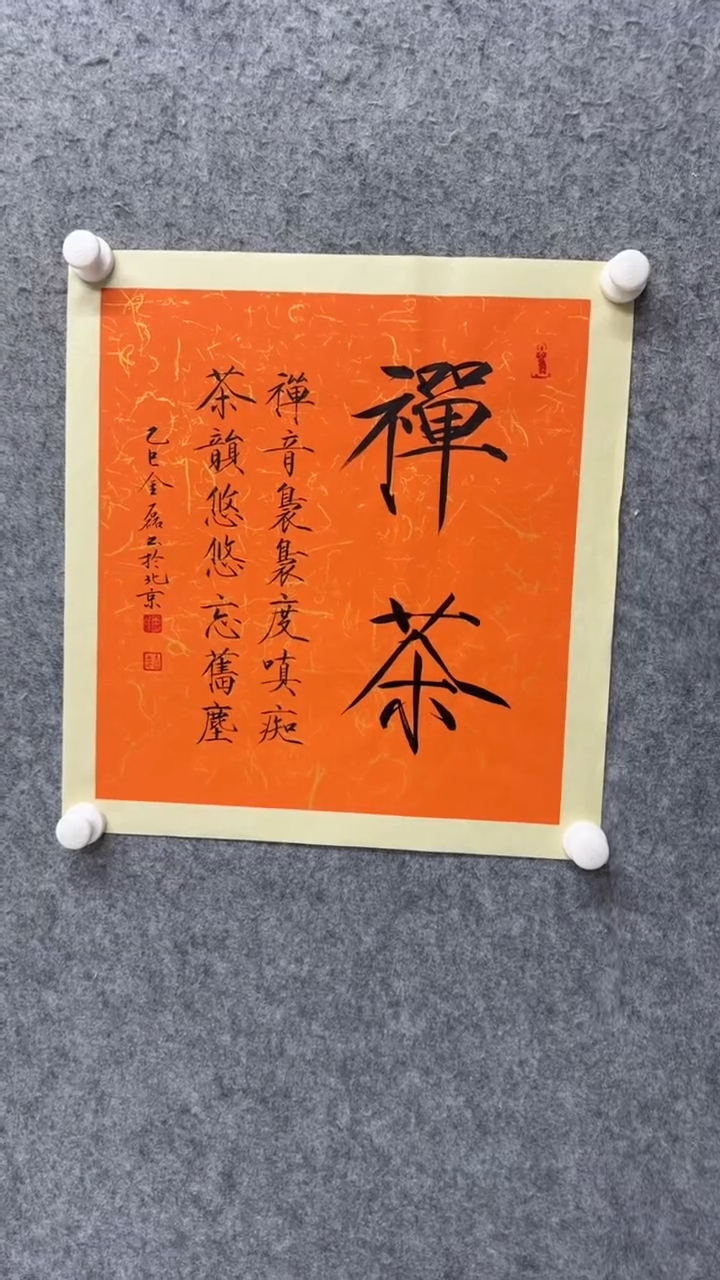 禪茶
禪音裊裊度嗔痴
茶韻悠悠忘舊塵
乙巳金磊书於北京